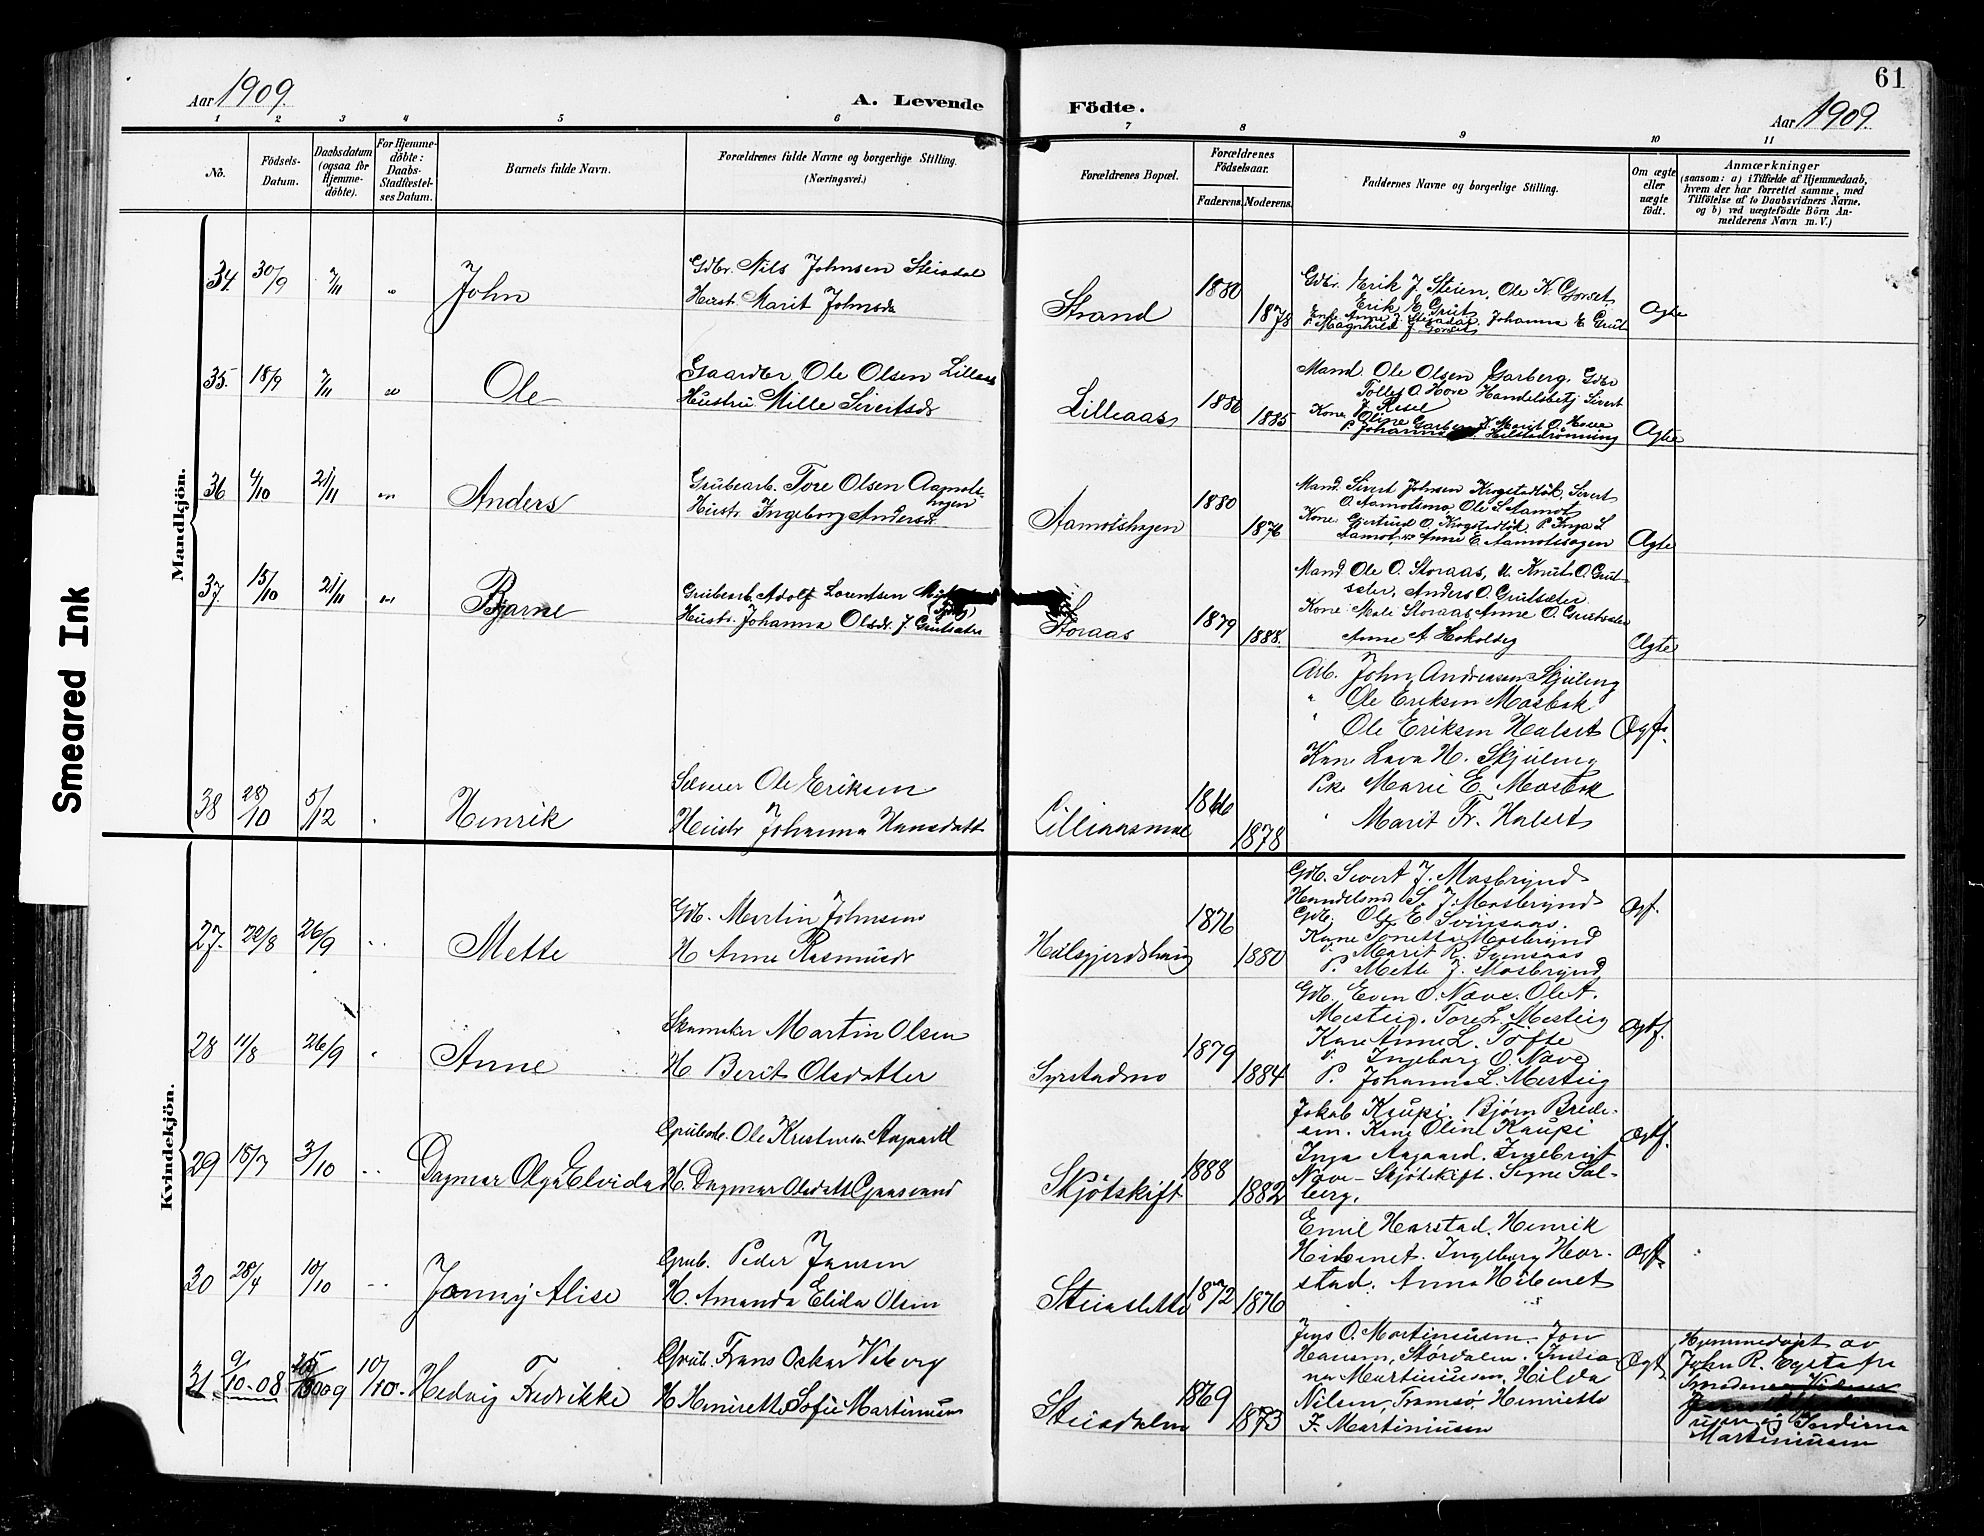 61
Aar 1909.
A. Levende
Födte.
Aar 1909.
1 2 3 4 5 6 7 8 9 10 11
No.
Födsels-
Datum.
Daabsdatum
(ogsaa for
Hjemme-
döbte).
For Hjemme-
döbte:
Daabs-
Stadfæstel-
ses Datum.
Barnets fulde Navn.
Forældrenes fulde Navne og borgerlige Stilling.
(Næringsvei.)
Forældrenes Bopæl.
Forældrenes
Födselsaar.
Faderens.
Moderens.
Faddernes Navne og borgerlige Stilling.
Om ægte
eller
uægte
födt.
Anmærkninger
(saasom: a) i Tilfælde af Hjemmedaab,
hvem der har forrettet samme, med
Tilföielse af to Daabsvidners Navne,
og b) ved uægtefödte Börn An-
melderens Navn m. V.)
Mandkjön.
34. 30/9 7/11 " John
Gdbr. Nils Johnsen Steindal
Hustr. Marit Johnsdr
Strand 1880 1878
Gdbr. Erik J. Steien, Ole K. Gorset
Erik E. Grut
Enke Anne J. Steindal, Johanna E Grut
P. Magnhild J. Gorset
Ægte
35. 18/9 7/11 " Ole
Gaardbr Ole Olsen Lilleaas
Hustru Mille Sivertsdr
Lilleaas 1886 1885
Mand Ole Olsen Garberg, Gdbr
Tolley O Hove Handelsbetj Sivert
J Resel
Kone Oline Garberg K. Marit O. Hove
P. Johanna Hilstadrønning
Ægte
36 4/10 21/11 " Anders
Grubearb. Tore Olsen Aamots-
hagen
Hustr. Ingeborg Andersd.
Aamotshagen 1880 1876
Mand. Sivert Johnsen Krogstadløk, Sivert
O. Aamotsmo, Ole S Aamot
Kone Gjertrud O. Krogstadløk P. Inga L
Aamot, Anne E. Aamotshagen
Ægte
37 15/10 21/11 " Bjarne
Grubearb. Adolf Lorentsen
Hustr. Johanna Olsdr. J Grutsæter
Storaas 1879 1888.
Mand Ole O. Storaas, U. Knut O. Grut-
sæter, Anders O. Grutsæter
Kone Male Storaas, Anne O. Grutsæter
Anne A Hokolsby
Ægte
38 28/10 5/12 . Henrik
Ole Eriksen
Hustr Johanna Hansdatt
Lilliaasmoe 1866 1878
Arb. John Andreassen Skjuling
" Ole Eriksen Mosbak
" Ole Eriksen Halset
Kone Lava H. Skjuling
Pike Marie E. Mosbak
" Marit Fr. Halset
Ægtf.
Kvindekjön.
27. 22/8 26/9 .. Mette
Gdb. Martin Johnsen
H Anne Rasmusdr
Halsgjerdshaug 1876 1880
Gdb. Sivert J. Mosbrynd
Handelsmd S. J. Mosbrynd
Gdb. Ole E. Svinsaas.
Kone Tonetta Mosbrynd
" Marit R. Svinsaas
P. Mette J. Mosbrynd
Ægf.
28 11/8 26/9 . Anne
Skomaker Martin Olsen
H. Berit Olsdatter
Syrstadmo 1879 1884
Gdb. Even O. Nave. Ole A.
Mestvig. Tore L. Mestvig
Kone Anne L. Tofte
P. Ingeborg O. Nave
P. Johanna L. Mestvig
Ægtf.
29 15/7 3/10 .. Dagmar Olga Elvida
Grubearb. Ole Kristian Aagaard
H. Dagmar Olsdatt Gaasvand
Skjøtskift 1888 1882
Jakob Kaupi. Bjørn Brede-
sen. Kone Oline Kaupi
Inga Aagaard. Ingebrigt
Nave - Skjøtskift. Signe Sol-
berg.
Ægtf.
30 28/4 10/10 .. Jonny Alise
Grub. Peder Jansen
H. Amanda Elida Olsen
Steinsletta 1872 1876
Emil Harstad. Henrik
Hibenet. Ingeborg Har-
stad. Anna Hibenet
Ægtf.
31 9/10-08 09 10/10. Hedvig Fredrikke
Grub. Frans Oskar Viberg
H Henirette Sofie Martinusen
Steindalen 1869 1873
Jens O. Martiniusen. Jon
Hansen, Stördalen. India-
na Martiniusen, Hilda
Nilsen, Tromsø, Henriette
F. Martiniusen
Ægt.
Hjemmedøpt av
John R. Egsta fra
og Indiana
Martiniusen
Smeared Ink